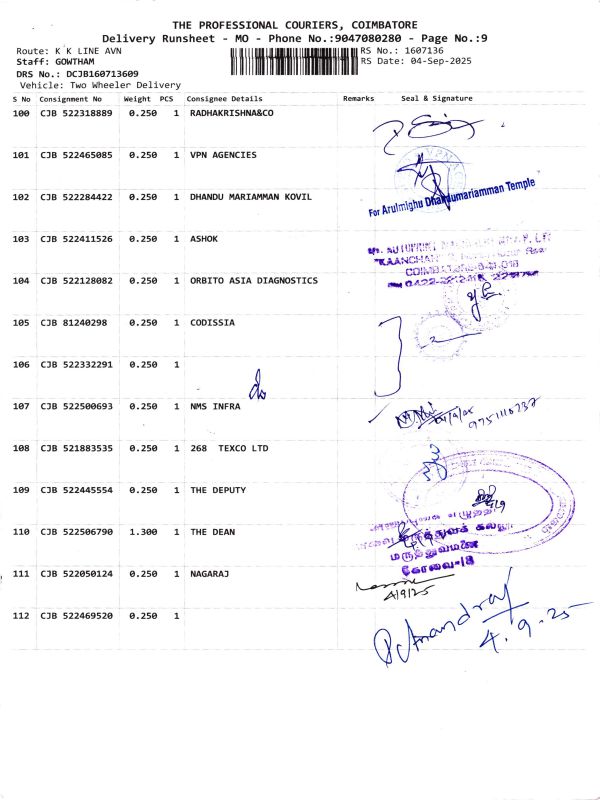 THE PROFESSIONAL COURIERS, COIMBATORE
Delivery Runsheet - MO - Phone No.:9047080280 - Page No.:9
Route: K K LINE AVN
RS No.: 1607136
Staff: GOWTHAM
RS Date: 04-Sep-2025
DRS No.: DCJB160713609
Vehicle: Two Wheeler Delivery
S No Consignment No Weight PCS Consignee Details Remarks Seal & Signature
100 CJB 522318889 0.250 1 RADHAKRISHNA&CO
101 CJB 522465085 0.250 1 VPN AGENCIES
102 CJB 522284422 0.250 1 DHANDU MARIAMMAN KOVIL
For Arulmighu Dhandumariamman Temple
103 CJB 522411526 0.250 1 ASHOK
104 CJB 522128082 0.250 1 ORBITO ASIA DIAGNOSTICS
105 CJB 81240298 0.250 1 CODISSIA
106 CJB 522332291 0.250 1
107 CJB 522500693 0.250 1 NMS INFRA
9751110237
108 CJB 521883535 0.250 1 268 TEXCO LTD
109 CJB 522445554 0.250 1 THE DEPUTY
110 CJB 522506790 1.300 1 THE DEAN
மருத்துவமனை
கோவை-18
111 CJB 522050124 0.250 1 NAGARAJ
4/9/25
112 CJB 522469520 0.250 1
4.9.25